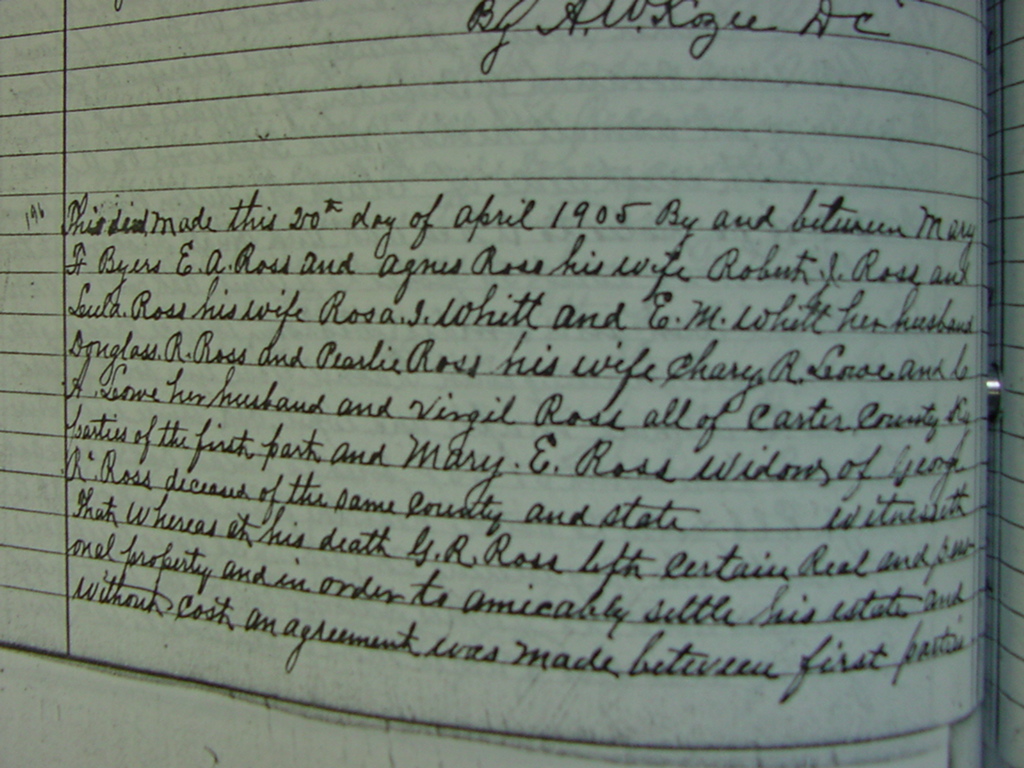 By A. W. Kozee DC
196
This deed made this 20th day of April 1905 By and between Mary
F Byers E. A. Ross and Agnes Ross his wife Robert J. Ross and
Lula Ross his wife Rosa. I. Whitt and E. M. Whitt her husband
Douglass. R. Ross and Pearlie Ross his wife R. Lowe and C
A. Lowe her husband and Virgil Ross all of Carter County Ky
parties of the first part and Mary. E. Ross widow of Georg
R. Ross deceased of the same County and state witnesseth
That whereas at his death G. R. Ross left certain Real and pers
onal property and in order to amicably settle his estate and
without cost an agreement was made between first parties